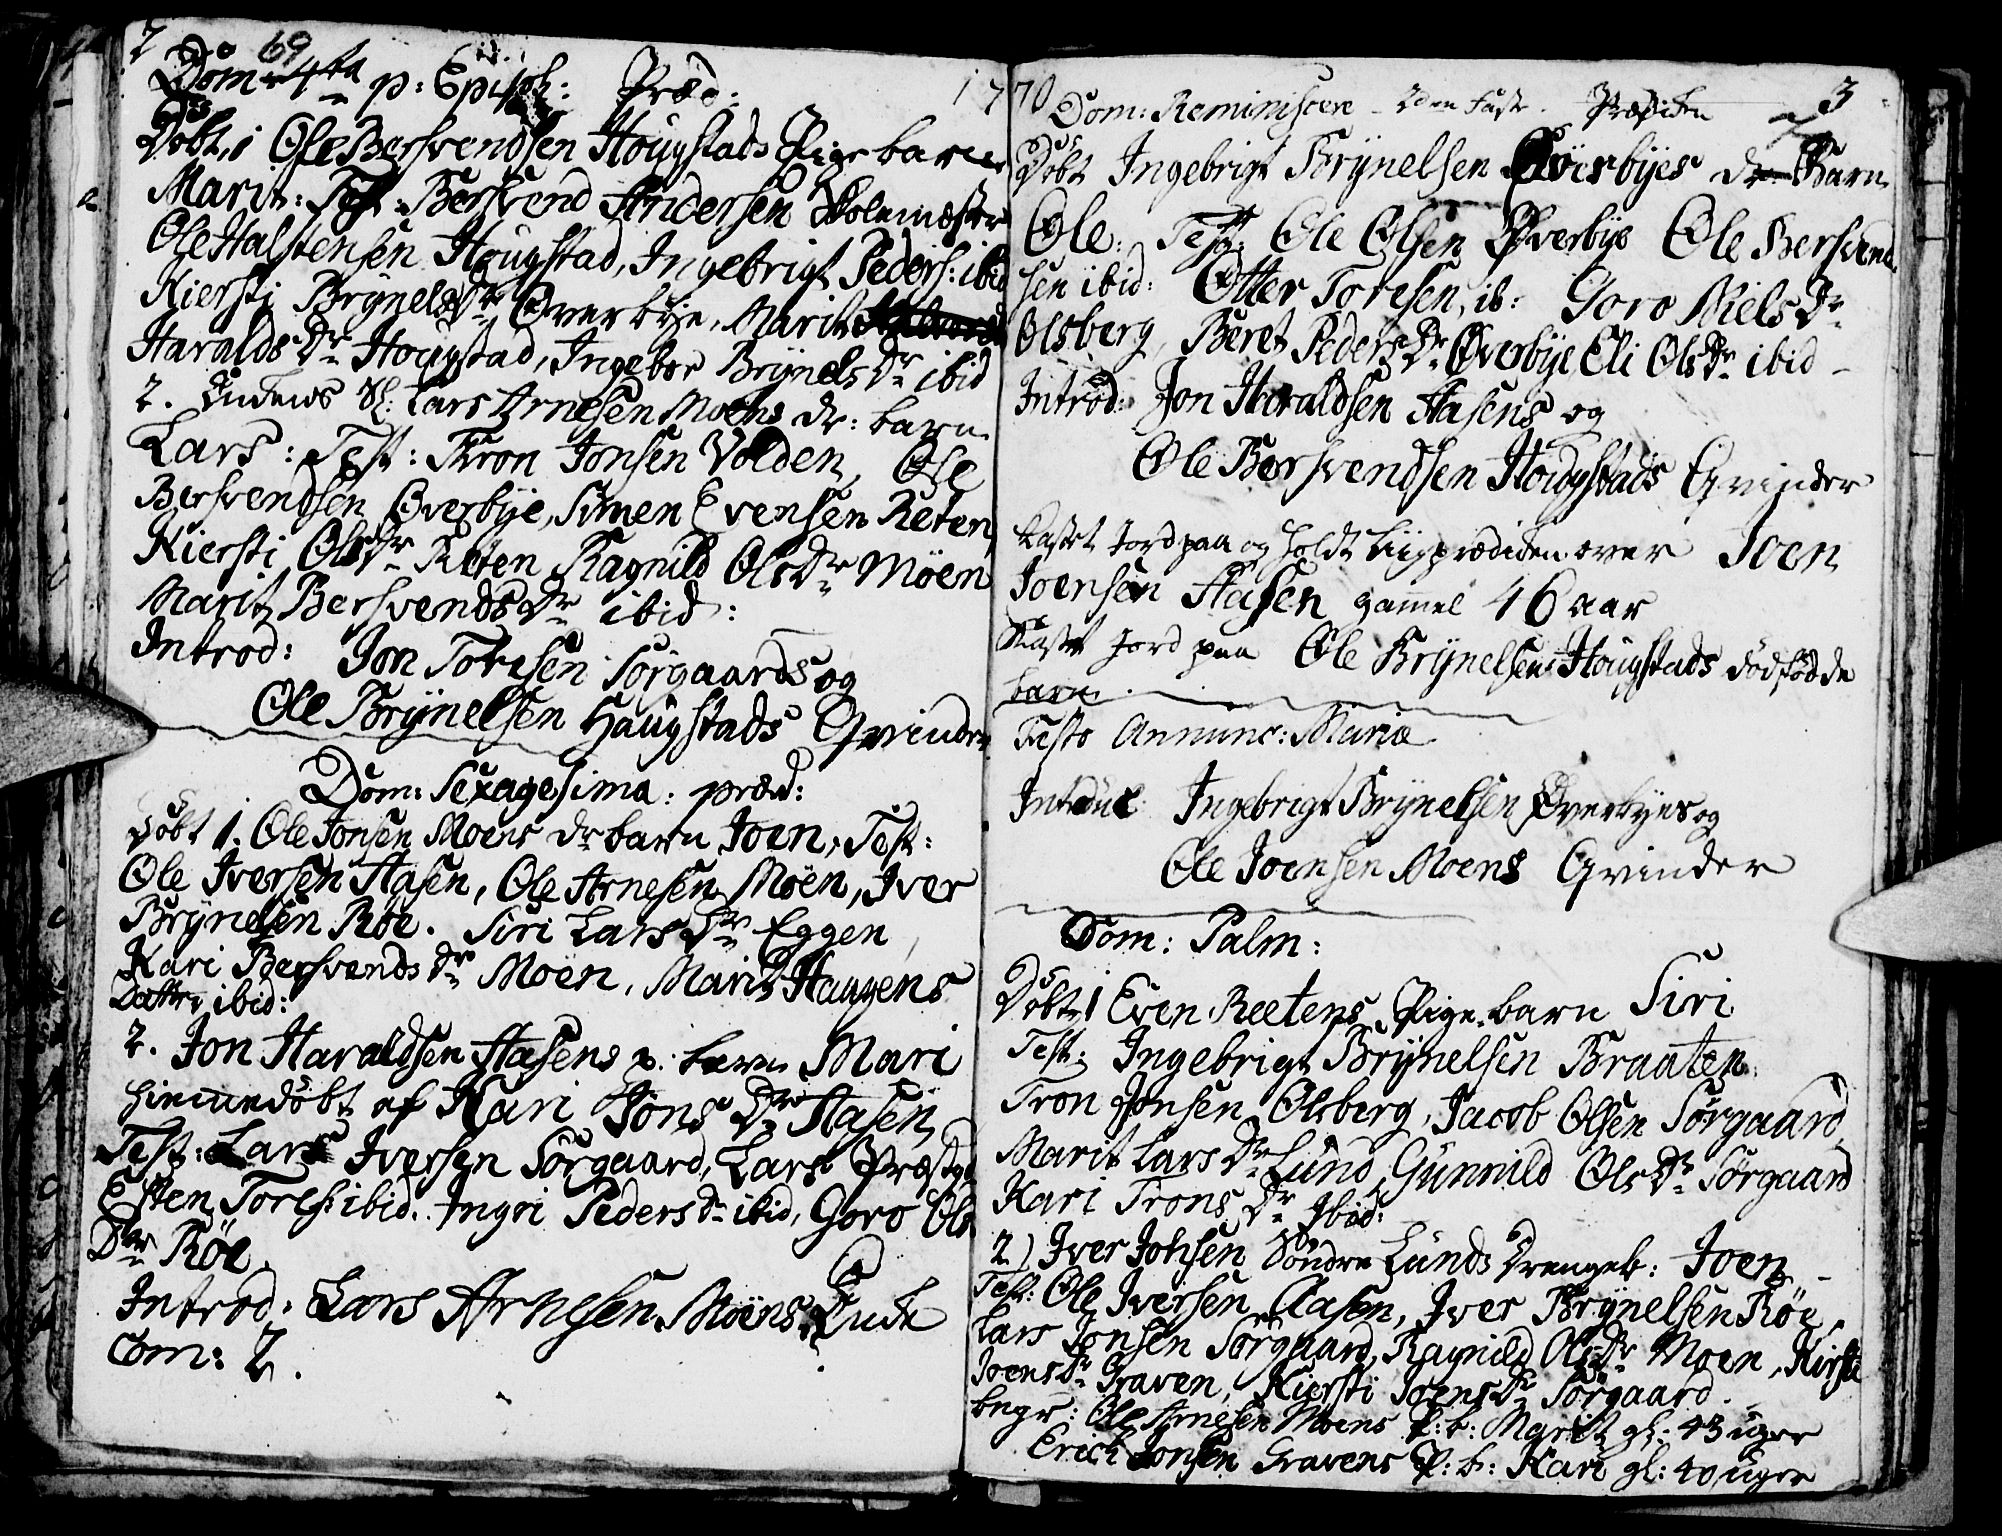 2
69
Dom 4ta p: Epiph: Præd:
Døbt, 1 Ole Bersvendsen Hougstads Pige barn
Marit: Test: Bersvend Andersen Skolemæster
Ole Halstensen Hougstad, Ingebrigt Peders: ibid
Kiersti Brynels Dr Øverbye, Marit
Haralds Dr Hougstad, Ingebor Brynels Dr ibid
2. Lars Arnesen Moens dr: barn
Lars: Test: Tron Jonsen Volden, Ole
Bersvendsen Øverbye, Simen Evensen Reten
Kiersti Ols Dr Reten Ragnild Ols Dr Møen
Marit Bersvends Dr ibid:
Introd: Jon Toresen Sørgaards og
Ole Brynelsen Haugstads Qvinder
Dom: Sexagesima: præd:
Døbt 1. Ole Jonsen Moens dr barn Joen, Test:
Ole Iversen Aasen, Ole Arnesen Møen, Iver
Brynelsen Røe. Siri Lars Dr Eggen
Kari Bersvends Dr Moen, Marit Haugens
Datter ibid:
2. Jon Haraldsen Aasens p. barn Mari
hiemmedøbt af Kari Jons Dr Aasen
Test: Lars Iversen Sørgaard, Lars
Esten Tores: ibid. Ingri Peders Dr ibid, Goro Ols
Dr Røe.
Introd: Lars Arnesen Moens Enke
Com: 2.
1770
3
Dom: Reminiscere 2den Faste.
Døbt Ingebrigt Brynelsen Øverbyes dr Barn
Ole: Test: Ole Olsen Øverbye Ole Bersvend
sen ibid: Otter Toresen, ib: Goro Niels Dr
Olsberg, Beret Peders Dr Øverbye, Eli Ols Dr ibid
Introd: Jon Haraldsen Aasens og
Ole Bersvendsen Hougstads Qvinder
Kastet Jord paa og holdt Liigprædiken over Joen
Joensen Aasen gammel 46 aar
Kastet Jord paa Ole Brynelsen Hougstads dødfødde
barn
Festo Annunc: Mariæ
Introduc: Ingebrigt Brynelsen Øverbyes og
Ole Joensen Moens Qvinder
Dom: Palm:
Døbt 1 Even Reetens Pige barn Siri
Test: Ingebrigt Brynelsen Braaten
Tron Jonsen Olsberg, Jacob Olsen Sørgaard,
Marit Lars Dr Lund, Gunnild Ols Dr Sørgaard
Kari Trons Dr Ibid:
2) Iver Johsen Søndre Lunds Drengeb: Joen
Test: Ole Iversen Aasen, Iver Brynelsen Røe,
Lars Jonsen Sørgaard, Ragnild Ols Dr Moen, Kirsti
Joens Dr Graven, Kiersti Joens Dr Sørgaard.
begr: Ole Arnesen Moens P: b: Marit gl: 43 uger
Erich Jonsen Gravens P: b: Kari gl: 40 uger